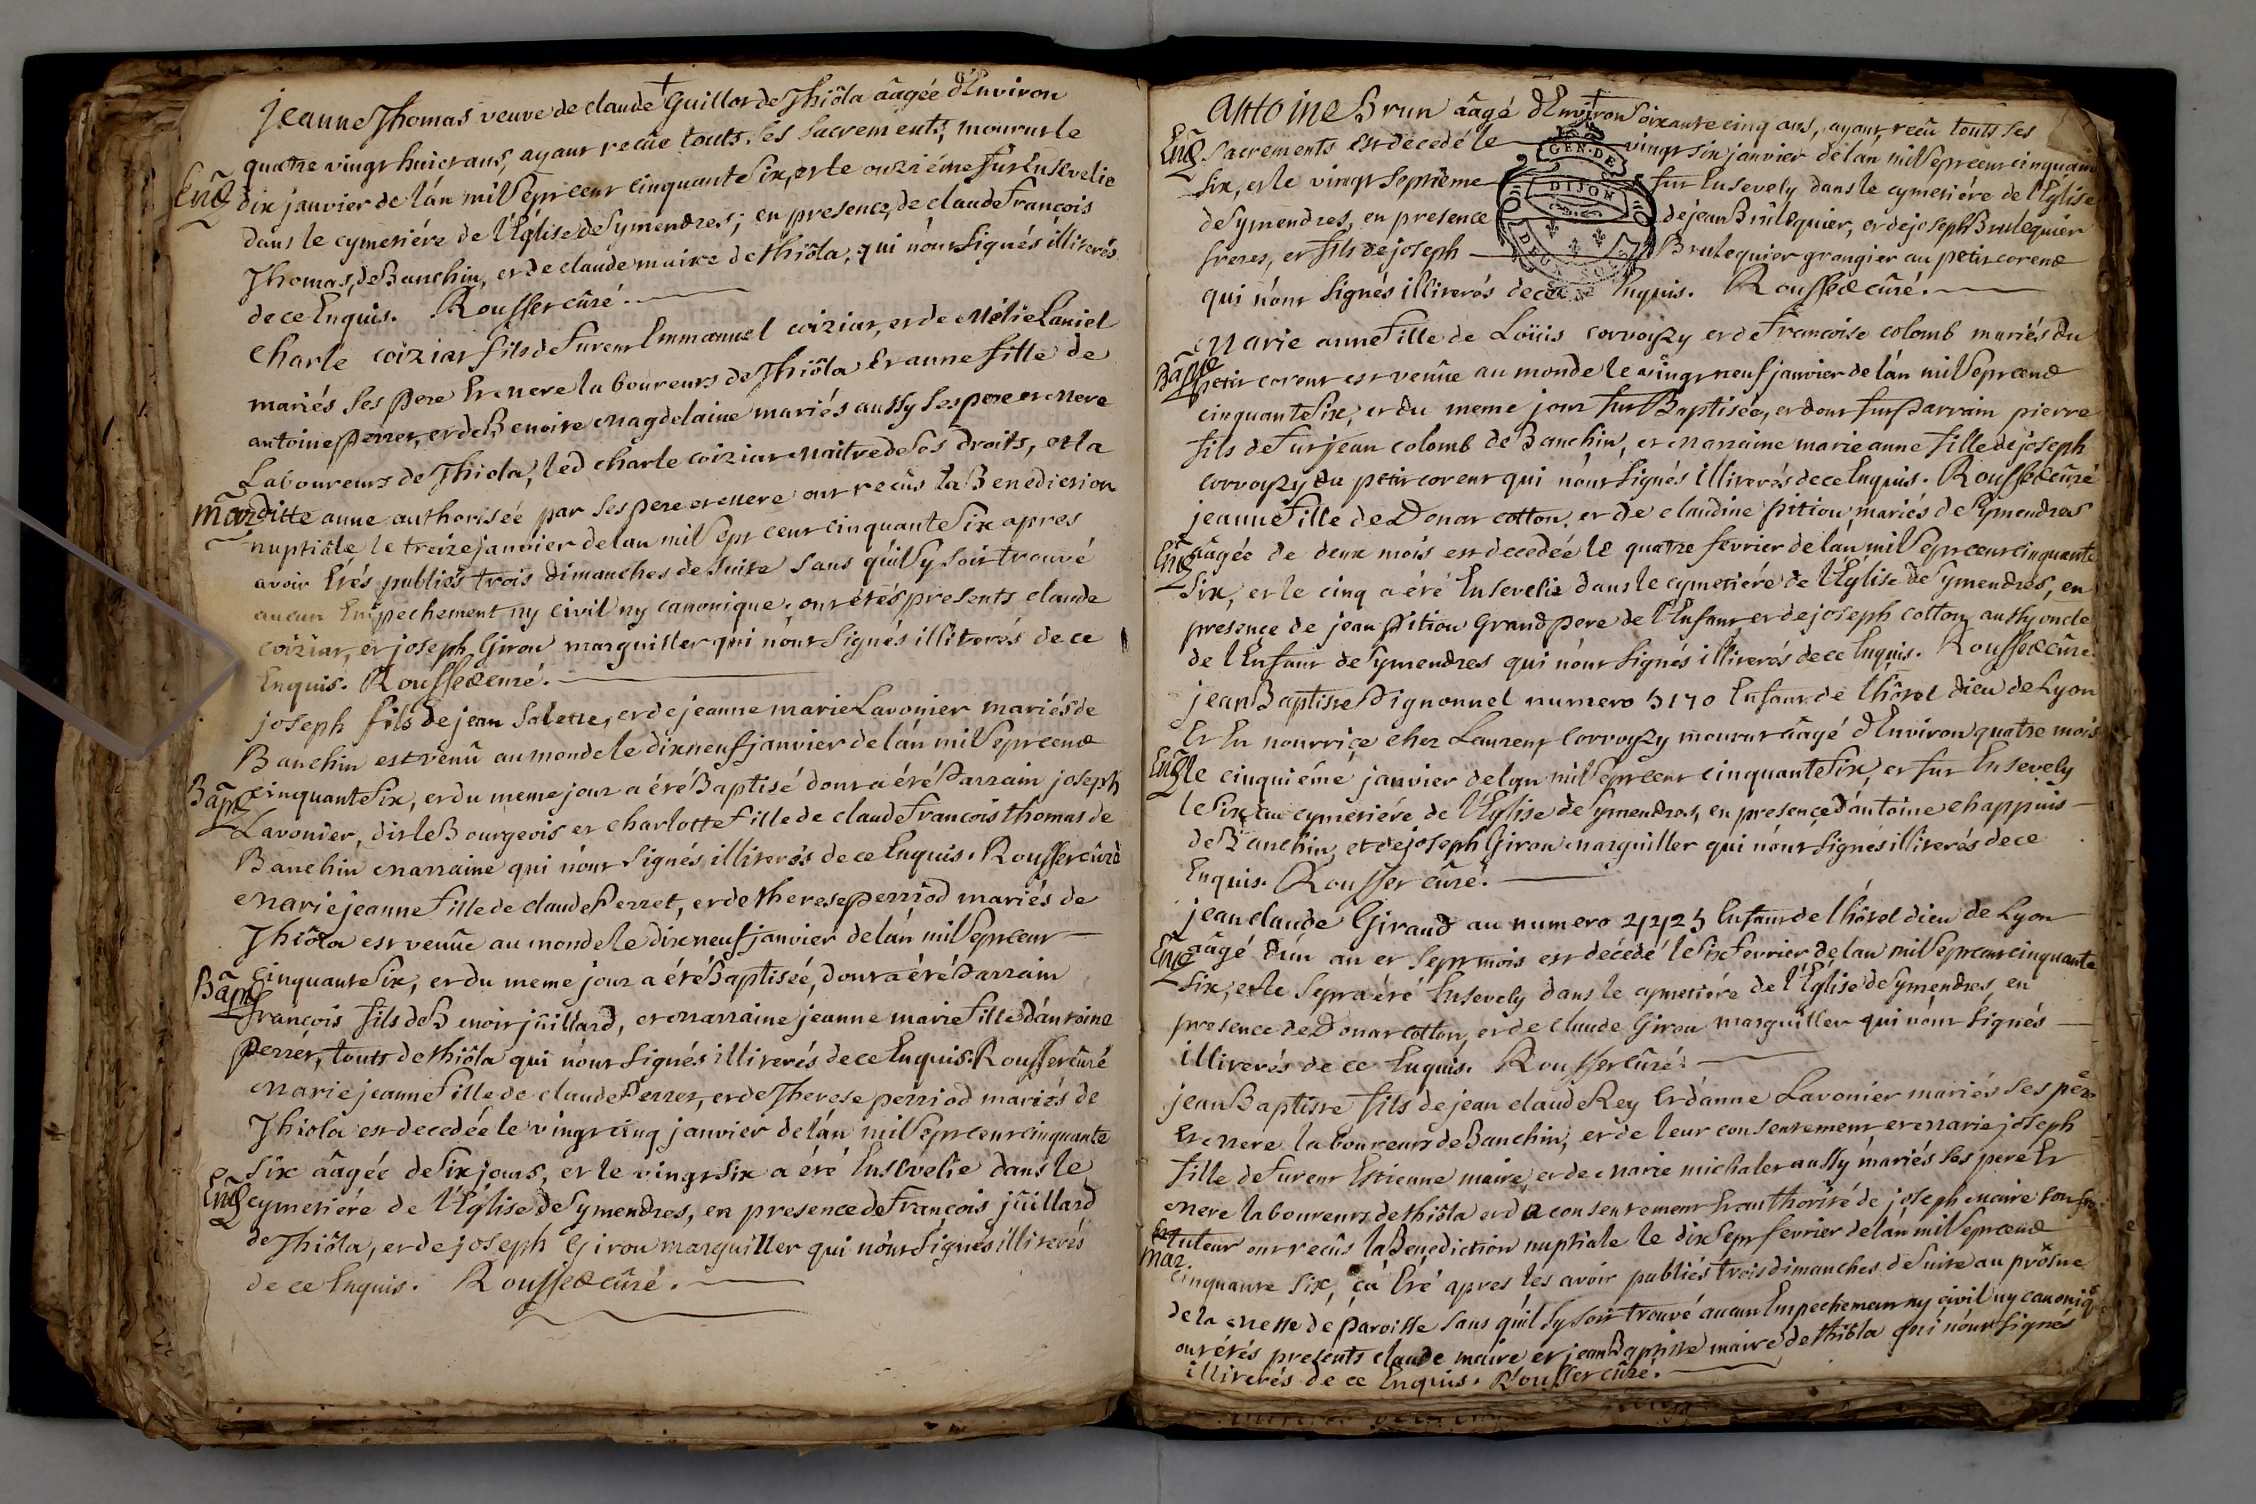 jeanne Thomas veuve de claude Guillot de Thiôla âagée d'Environ
quatre vingt huict ans, ayant recûe touts ses sacrements, mourut le
Ens
dix janvier de l'án mil sept cent cinquante six, et le onziéme fut Ensevelie
dans le cymetiére de l'Église de Symendres; en presence de claude François
Thomas, de Banchin, et de claude maire de thiôla, qui n'ont signés illiterés
de ce Enquis. Rousset cûré.
Charle coiziat fils de furent Emmanuel coiziat, et de Melie Laniel
mariés ses pere Et mere laboureurs de Thiôla Et anne fille de
antoine perret, et de Benoite Magdelaine mariés aussy ses pere et mere
Laboureurs de Thiola, led charle coiziat maitre de ses droits, et la
Mar
ditte anne authorisée par ses pere et mere ont recûs la Benediction
nuptiâle le treize janvier de lan mil sept cent cinquante six apres
avoir Etés publiés trois dimanches de suite sans qu'il y soit trouvé
aucun Empechement ny civil ny canonique; ont étés presents claude
coiziat, et joseph Giron marguiller qui n'ont signés illiterés de ce
Enquis. Rousset curé.
joseph fils de jean Salette, et de jeanne marie Lavonier mariés de
Banchin est venû au monde le dixneuf janvier de l'án mil sept cent
Bapt
cinquante six, et du meme jour a été Baptisé dont a été Parrain joseph
Lavonier, dit le Bourgeois et charlotte fille de claude François thomas de
Banchin marraine qui n'ont signés illiterés de ce Enquis. Rousset cûré
Marie jeanne fille de claude Perret, et de therese perriod mariés de
Thiôla est venûe au monde le dixneuf janvier de l'án mil sept cent
Bapt
cinquante six, et du meme jour a été Baptisée, dont a été Parrain
françois fils de Benoit jûillard, et marraine jeanne marie fille d'ántoine
Perret, touts de thiôla qui n'ont signés illiterés de ce Enquis. Rousset cûré
Marie jeanne fille de claude Perret, et de Therese perriod mariés de
Thiola est decedée le vingt cinq janvier de l'án mil sept cent cinquante
six âagée de six jours, et le vingt six a été Ensevelie dans le
Ens
cymetiére de l'Église de Symendres, en presence de François jûillard
de Thiôla, et de joseph Giron marguiller qui n'ont signés illiterés
de ce Enquis. Rousset cûré.
Antoine Brun âagé d'Environ soixante cinq ans, ayant recû touts ses
Ens
sacrements est decedé le vingt six janvier de l'án mil sept cent cinquante
six, et le vingt septiéme fut Ensevely dans le cymetiére de l'Eglise
de Symendres, en presence de jean Brûlequier, et de joseph Brulequier
freres, et fils de joseph Brulequier grangier au petit corent
qui n'ont signés illiterés de ce Enquis. Rousset cûré.
GEN. DE
DIJON
DEUX SOLS
Marie anne fille de Loüis corvoyzy et de Françoise colomb mariés du
Bapt
petit corent est venûe au monde le vingt neuf janvier de l'án mil sept cent
cinquante six, et du meme jour fut Baptisée, et dont fut Parrain pierre
fils de fut jean colomb de Banchin, et marraine marie anne fille de joseph
corvoyzy du petit corent qui n'ont signés illiterés de ce Enquis. Rousset cûré
jeanne fille de Donat cotton, et de claudine pitiou, mariés de Symendres
Ens
âagée de deux mois est decedée le quatre fevrier de lan mil sept cent cinquante
six, et le cinq a été Ensevelie dans le cymetiére de l'Église de Symendres, en
presence de jean pitiou Grand pere de l'Enfant, et de joseph cotton, aussy oncle
de l'Enfant de Symendres qui n'ont signés illiterés de ce Enquis. Rousset cûré.
jean Baptiste Pignonnel numero 5170 Enfant de l'hôtel dieu de Lyon
Et En nourriçe chez Laurent Corvoyzy mourut âagé d'Environ quatre mois
Ens
le cinquiéme janvier de lan mil sept cent cinquante six, et fut Ensevely
le six au cymetiére de l'Eglise de Symendres, en presence d'ántoine chappuis
de Banchin, et de joseph Giron marguiller qui n'ont signés illiterés de ce
Enquis. Rousset cûré.
jean claude Giraud au numero 24425 Enfant de l'hôtel dieu de Lyon
Ens
âagé d'un an et sept mois est décédé le six Fevrier de lan mil sept cent cinquante
six, et le sept a été Ensevely dans le cymetiére de l'Église de Symendres, en
presence de Donat cotton, et de claude Giron marguiller qui n'ont signés
illiterés de ce Enquis. Rousset cûré.
jean Baptiste fils de jean claude Rey Et d'anne Lavonier mariés ses pere
Et mere laboureurs de Banchin, et de leur consentement et marie joseph
fille de furent Estienne maire, et de marie michalet aussy mariés ses pere Et
mere laboureurs de thiôla et du consentement Et authorité de joseph maire son
tuteur ont recûs la Benediction nuptiale le dix sept fevrier de lán mil sept cent
Mar
cinquante six, ça Eté apres les avoir publiés trois dimanches de suite au prône
de la messe de paroisse sans qu'il s'y soit trouvé aucun Empechement ny civil ny canoniq
ont étés presents claude maire et jean Baptiste maire de thiôla qui n'ont signés
illiterés de ce Enquis. Rousset cûré.